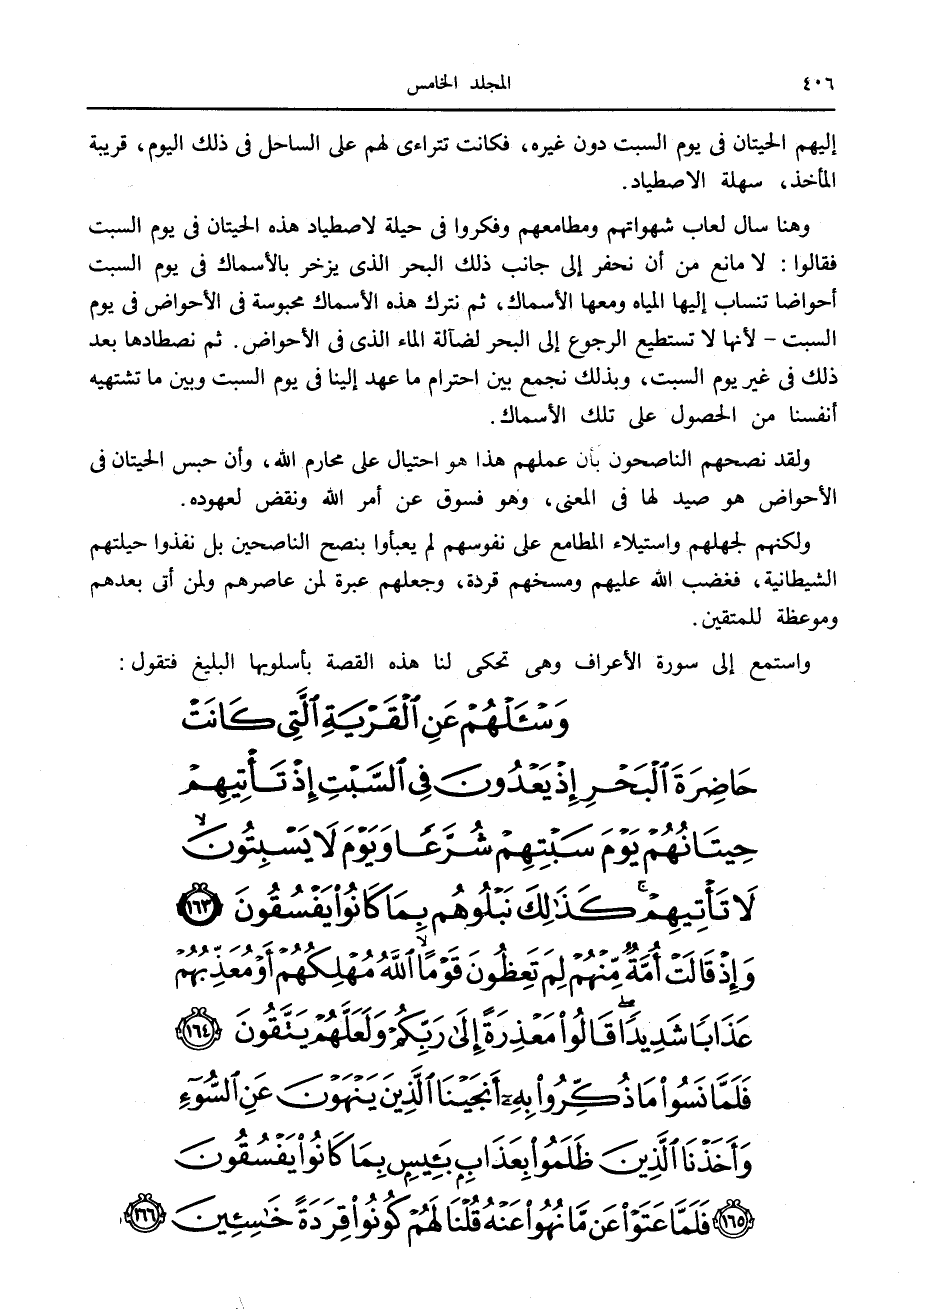 ٤٠٦ المجلد الخامس
إليهم الحيتان فى يوم السبت دون غيره، فكانت تتراءى لهم على الساحل فى ذلك اليوم، قريبة
المأخذ، سهلة الاصطياد.
وهنا سال لعاب شهواتهم ومطامعهم وفكروا فى حيلة لاصطياد هذه الحيتان فى يوم السبت
فقالوا : لا مانع من أن نحفر إلى جانب ذلك البحر الذى يزخر بالأسماك فى يوم السبت
أحواضا تنساب إليها المياه ومعها الأسماك، ثم نترك هذه الأسماك محبوسة فى الأحواض فى يوم
السبت – لأنها لا تستطيع الرجوع إلى البحر لضآلة الماء الذى فى الأحواض. ثم نصطادها بعد
ذلك فى غير يوم السبت، وبذلك نجمع بين احترام ما عهد إلينا فى يوم السبت وبين ما تشتهيه
أنفسنا من الحصول على تلك الأسماك.
ولقد نصحهم الناصحون بأن عملهم هذا هو احتيال على محارم الله، وأن حبس الحيتان فى
الأحواض هو صيد لها فى المعنى، وهو فسوق عن أمر الله ونقض لعهوده.
ولكنهم لجهلهم واستيلاء المطامع على نفوسهم لم يعبأوا بنصح الناصحين بل نفذوا حيلتهم
الشيطانية، فغضب الله عليهم ومسخهم قردة، وجعلهم عبرة لمن عاصرهم ولمن أتى بعدهم
وموعظة للمتقين.
واستمع إلى سورة الأعراف وهى تحكى لنا هذه القصة بأسلوبها البليغ فتقول :
وَسْـَٔلْهُمْ عَنِ ٱلْقَرْيَةِ ٱلَّتِى كَانَتْ
حَاضِرَةَ ٱلْبَحْرِ إِذْ يَعْدُونَ فِى ٱلسَّبْتِ إِذْ تَأْتِيهِمْ
حِيتَانُهُمْ يَوْمَ سَبْتِهِمْ شُرَّعًا وَيَوْمَ لَا يَسْبِتُونَ ۙ
لَا تَأْتِيهِمْ ۚ كَذَٰلِكَ نَبْلُوهُم بِمَا كَانُوا۟ يَفْسُقُونَ ١٦٣
وَإِذْ قَالَتْ أُمَّةٌ مِّنْهُمْ لِمَ تَعِظُونَ قَوْمًا ۙ ٱللَّهُ مُهْلِكُهُمْ أَوْ مُعَذِّبُهُمْ
عَذَابًا شَدِيدًا ۖ قَالُوا۟ مَعْذِرَةً إِلَىٰ رَبِّكُمْ وَلَعَلَّهُمْ يَتَّقُونَ ١٦٤
فَلَمَّا نَسُوا۟ مَا ذُكِّرُوا۟ بِهِۦٓ أَنجَيْنَا ٱلَّذِينَ يَنْهَوْنَ عَنِ ٱلسُّوٓءِ
وَأَخَذْنَا ٱلَّذِينَ ظَلَمُوا۟ بِعَذَابٍۭ بَـِٔيسٍۭ بِمَا كَانُوا۟ يَفْسُقُونَ
١٦٥ فَلَمَّا عَتَوْا۟ عَن مَّا نُهُوا۟ عَنْهُ قُلْنَا لَهُمْ كُونُوا۟ قِرَدَةً خَٰسِـِٔينَ ١٦٦